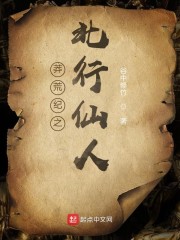 莽荒纪之
北行仙人
著
起点中文网